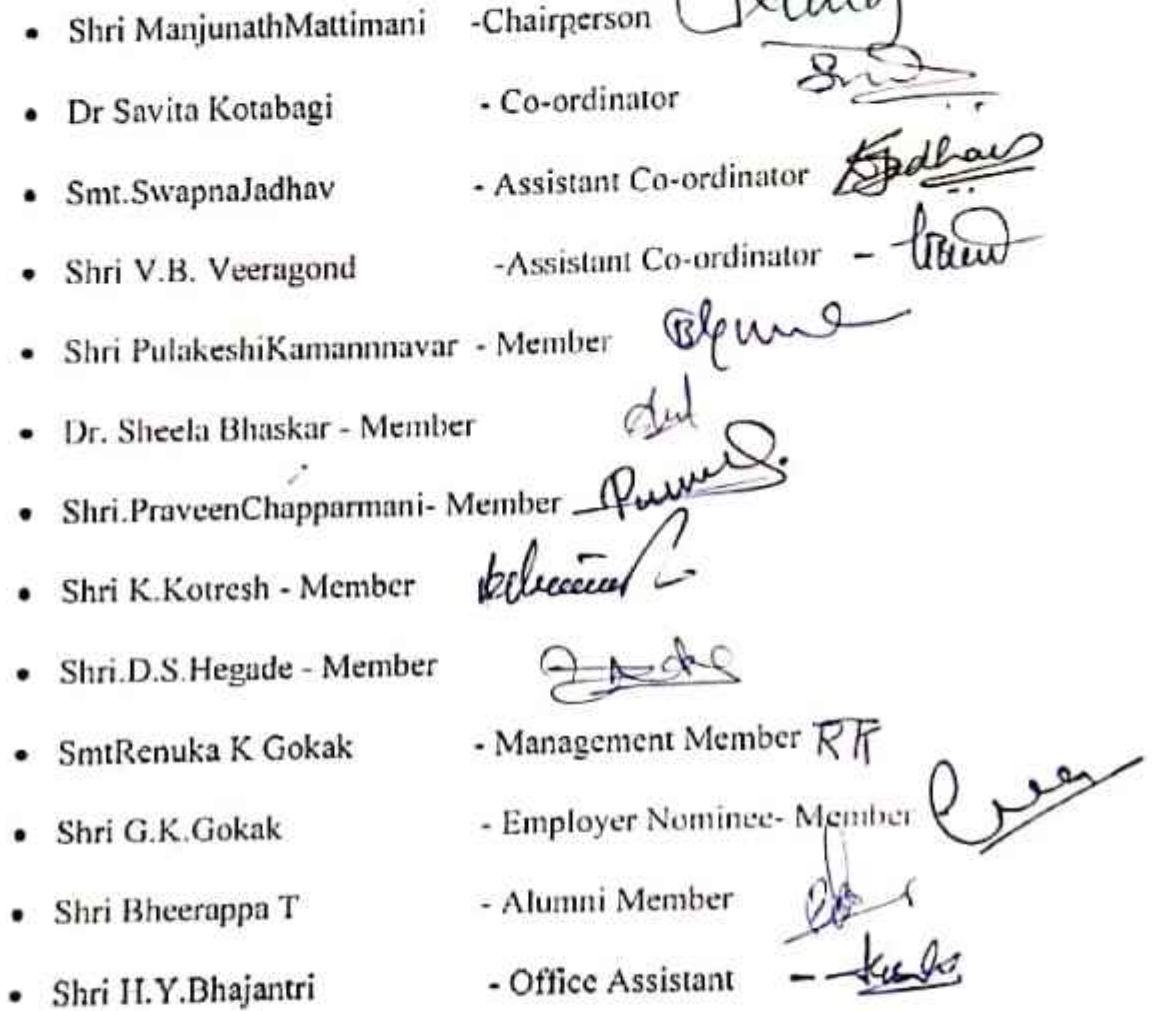 • Shri ManjunathMattimani -Chairperson
• Dr Savita Kotabagi - Co-ordinator
• Smt.SwapnaJadhav - Assistant Co-ordinator
• Shri V.B. Veeragond -Assistant Co-ordinator -
• Shri PulakeshiKamannnavar - Member
• Dr. Sheela Bhaskar - Member
• Shri.PraveenChapparmani- Member
• Shri K.Kotresh - Member
• Shri.D.S.Hegade - Member
• SmtRenuka K Gokak - Management Member RK
• Shri G.K.Gokak - Employer Nominee- Member
• Shri Bheerappa T - Alumni Member
• Shri H.Y.Bhajantri - Office Assistant -